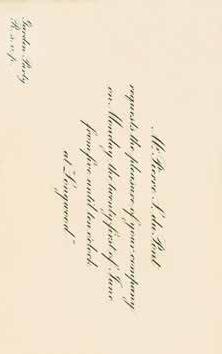 Mr. Pierre S. du Pont
requests the pleasure of your company
on Monday, the twenty first of June
from five until ten o'clock
at "Longwood"
Garden Party
R.s.v.p.